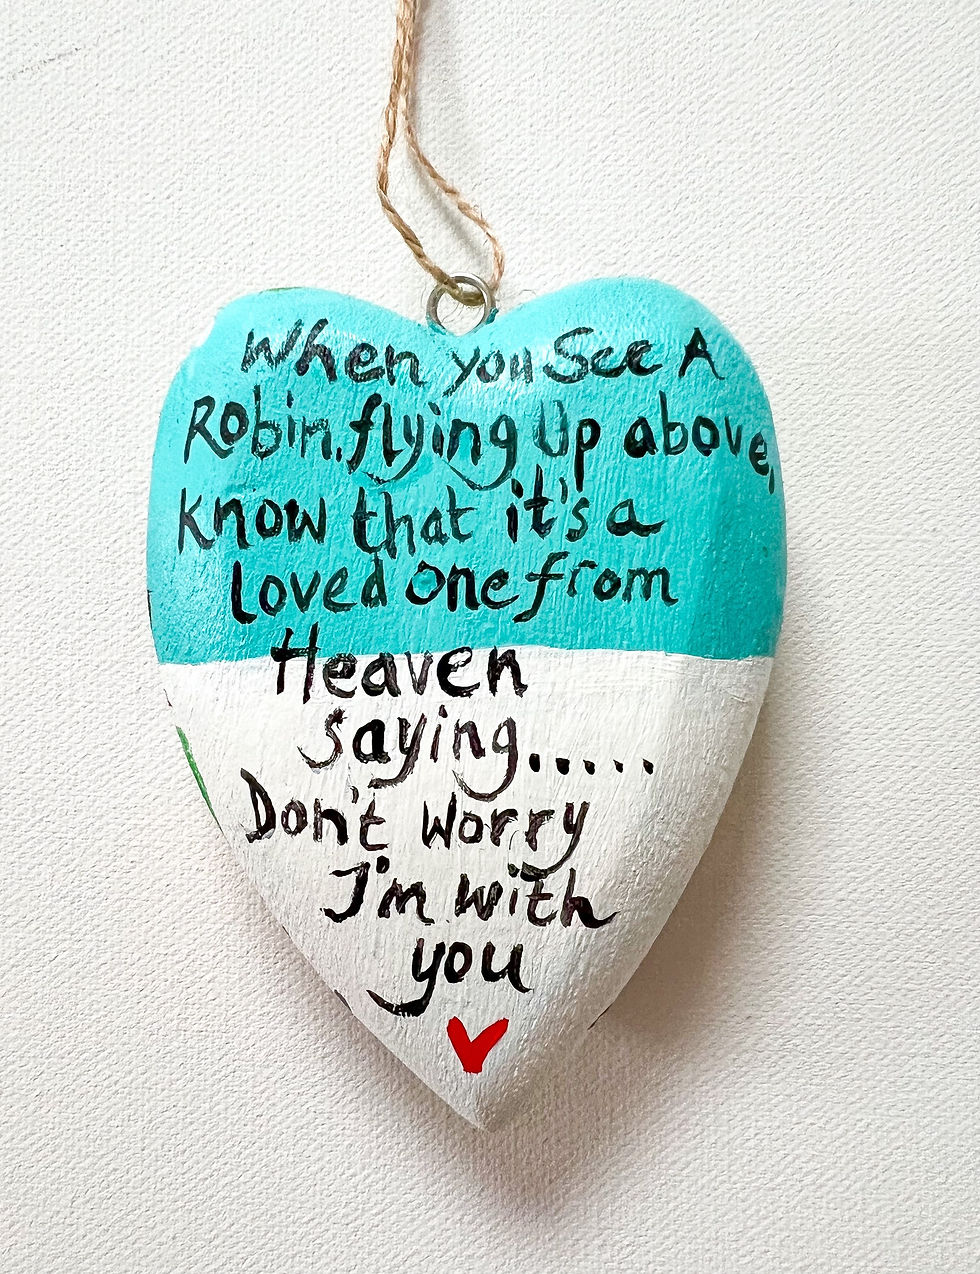 When you See A
Robin, flying Up above,
know that it's a
loved one from
Heaven
saying.....
Don't Worry
I'm with
you